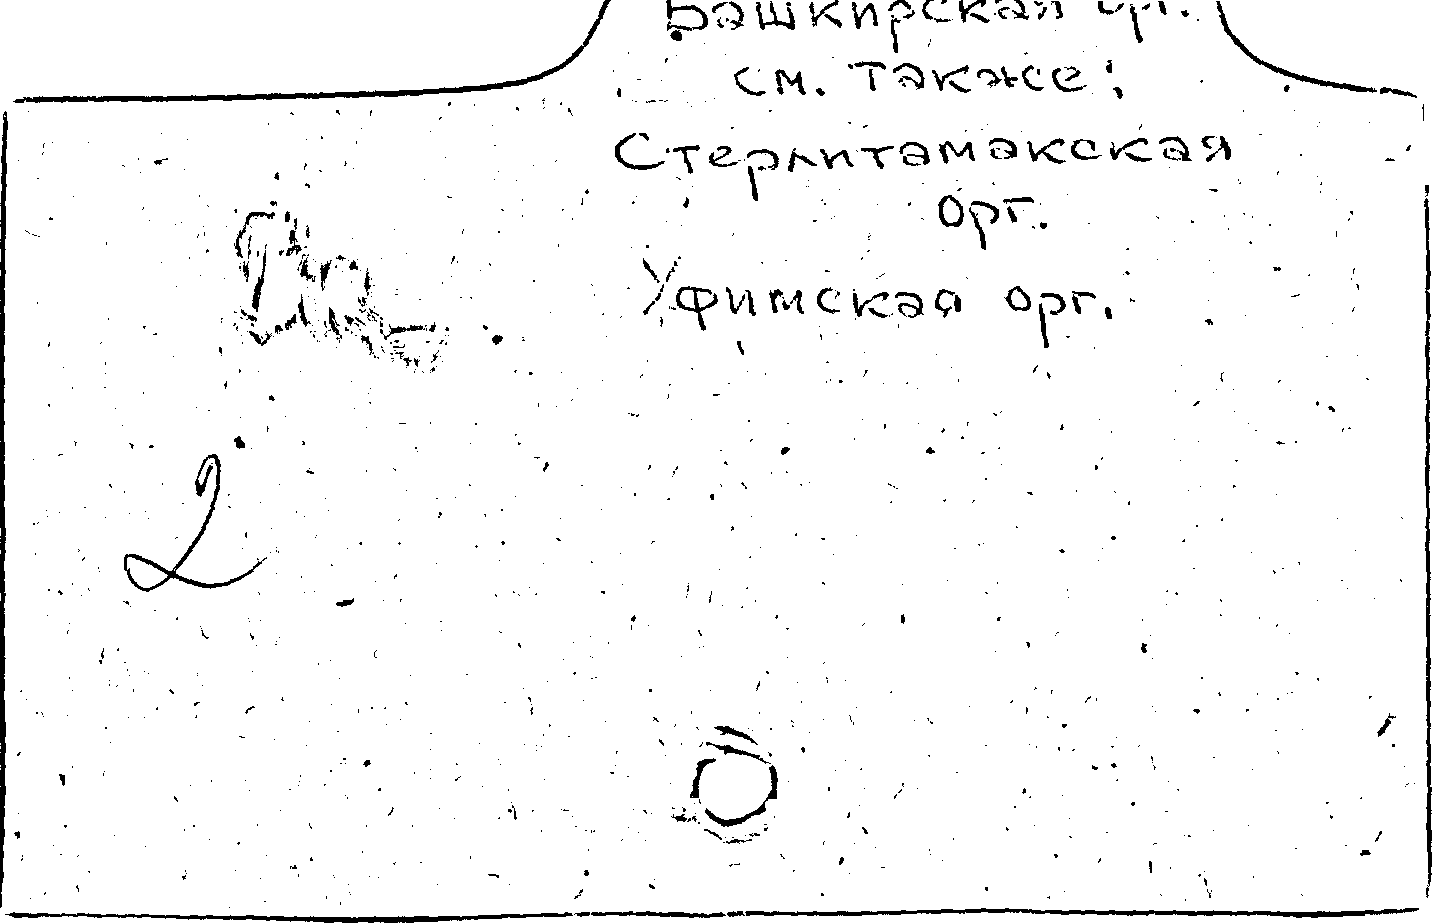 Башкирская орг.
см. также:
Стерлитамакская
орг.
Уфимская орг.
2